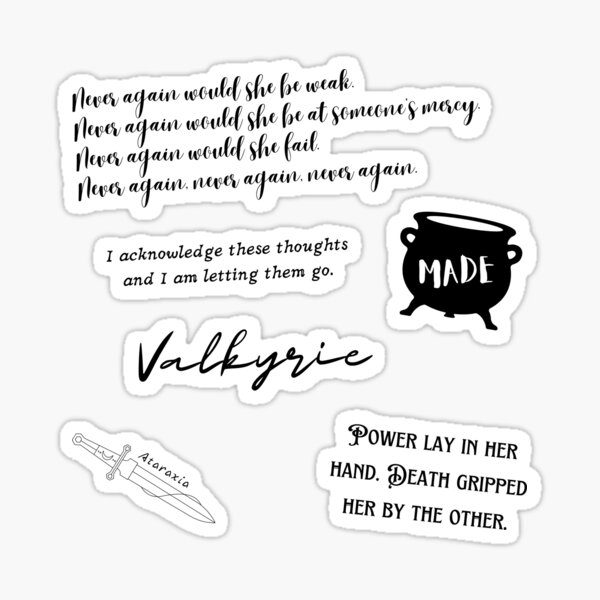 Never again would she be weak.
Never again would she be at someone's mercy.
Never again would she fail.
Never again, never again, never again.
I acknowledge these thoughts
and I am letting them go.
MADE
Valkyrie
Ataraxia
Power lay in her
hand. Death gripped
her by the other.